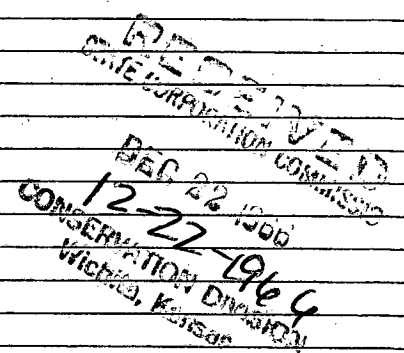 RECEIVED
STATE CORPORATION COMMISSION
DEC 22 1966
12-22-1966
CONSERVATION DIVISION
Wichita, Kansas